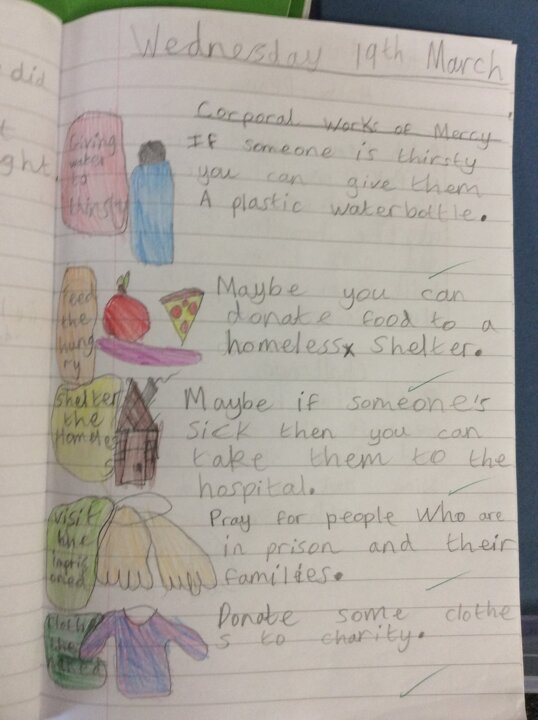 did
t
ght.
Wednesday 19th March
Corporal works of Mercy
Giving
water
to
thirsty
If someone is thirsty
you can give them
A plastic waterbottle.
feed
the
hung
ry
Maybe you can
donate food to a
homelessx Shelter.
Shelter
the
Homeles
s
Maybe if someone's
Sick then you can
take them to the
hospital.
visit
the
impris
oned
Pray for people who are
in prison and their
families.
clothe
the
naked
Donate some clothe
s to charity.